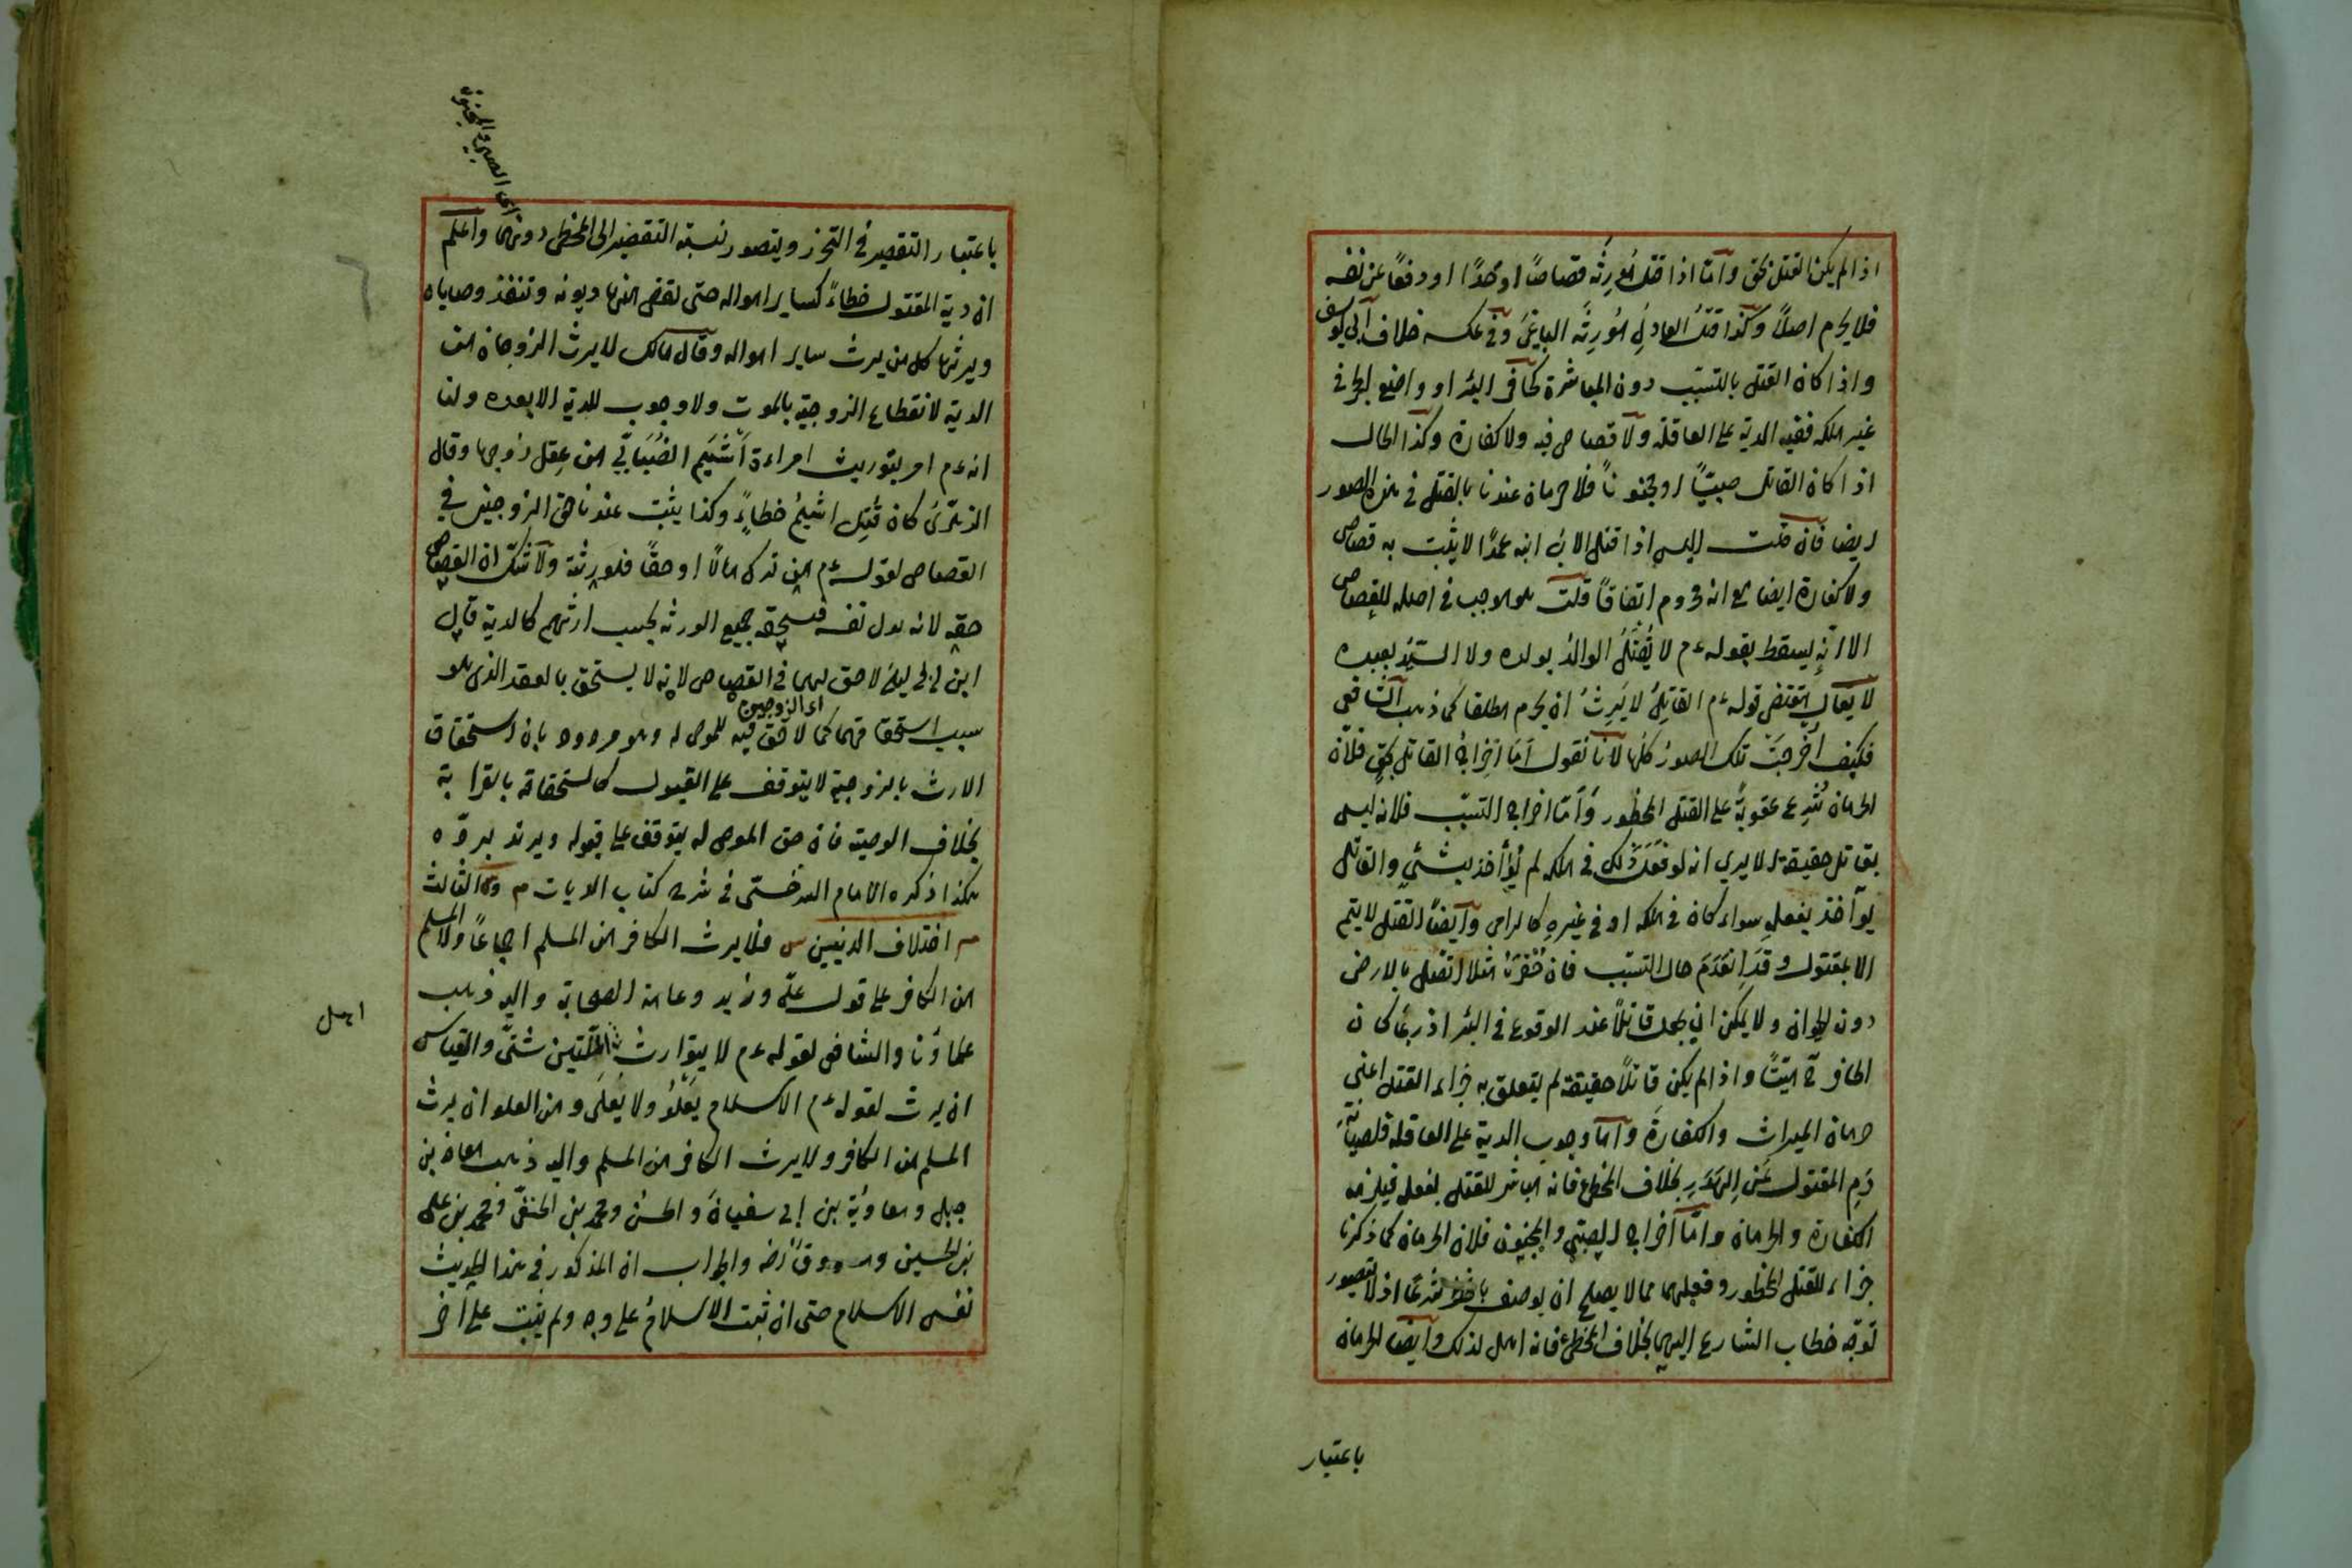 اذا لم يكن القتل بحق وامّا اذا قتل مُورِثه قصاصًا او حدًّا او دفعًا عن نفسه
فلا يحرم اصلاً وكذا قتلُ العادلِ مُورِثَه الباغىَ وفى عكسه خلاف ابى يوسف
واذا كان القتل بالتسبّب دون المباشرة كحافر البئر او واضع الحجر فى
غير ملكه ففيه الدية على العاقلة ولا قصاص فيه ولا كفارة وكذا الحال
اذا كان القاتل صبيًّا او مجنونًا فلا حرمان عندنا بالقتل فى هذه الصور
ايضا فان قلت اليس اذا قتل الاب ابنه عمدًا لا يثبت به قصاص
ولا كفارة ايضا مع انه محروم اتفاقًا قلت هو موجب فى اصله للقصاص
الا انّه يسقط بقوله عم لا يُقتَلُ الوالدُ بولده ولا السيّدُ بعبده
لا يقال مقتضى قوله عم القاتِلُ لا يَرِثُ ان يحرم مطلقا كما ذهب الشافعى
فكيف أُخرِجَتْ تلك الصورُ كلُّها لانا نقول امّا اخراجُ القاتل بحقٍ فلانّ
الحرمان شُرِع عقوبةً على القتل المحظور وامّا اخراج التسبّب فلانه ليس
بقاتل حقيقة الا يرى انه لو فَعَلَ ذلك فى ملكه لم يُؤاخذ بشئٍ والقاتل
يوآخذ بفعله سواء كان فى ملكه او فى غيره كالرامى وايضًا القتل لا يتم
الا بمقتول وقد انعَدَمَ حال التسبّب فان حَفْرَه مثلا اتصل بالارض
دون الحيوان ولا يمكن ان يجعل قاتلاً عند الوقوع فى البئر اذ ربّما كان
الحافر ح ميّتًا واذا لم يكن قاتلاً حقيقة لم يتعلق به جزاء القتل اعنى
حرمان الميراث والكفارةَ وامّا وجوب الدية على العاقلة فلصيانة
دَمِ المقتول عَنِ الهَدَرِ بخلاف المخطئ فانه مباشر للقتل بفعله فيلزمه
الكفارة والحرمان وامّا اخراج الصبىّ والمجنون فلان الحرمان كما ذكرنا
جزاء للقتل المحظور وفعلهما مما لا يصلح ان يوصف بالحظر شرعًا اذ لا يتصور
توجّه خطاب الشارع اليهما بخلاف المخطئ فانه اهل لذلك وايضا الحرمان
باعتبار
اى الصبى والمجنون
باعتبار التقصير فى التحرز ويتصور نسبة التقصير الى المخطئ دونهما واعلم
ان دية المقتول خطاءً كساير امواله حتى تقضى منها ديونه وتنفذ وصاياه
ويرثها كل من يرث ساير امواله وقال مالك لا يرث الزوجان من
الدية لانقطاع الزوجية بالموت ولا وجوب للدية الا بعده ولنا
انه عم امر بتوريث امراءة أَشْيَم الضُبَابىّ من عقل زوجها وقال
الزهرىّ كان قُتِل اشيمُ خطاءً وكذا يثبت عندنا حق الزوجين فى
القصاص لقوله عم من ترك مالاً او حقًا فلورثته ولا شكّ ان القصاص
حقه لانه بدل نفسه فيستحقه جميع الورثة بحسب ارثهم كالدية قال
ابن ابى ليلى لا حق لهما فى القصاص لانه لا يستحق بالعقد الذى هو
اى الزوجين
سبب استحقاقهما كما لا حق فيه للموصى له وهو مردود بان استحقاق
الارث بالزوجية لا يتوقف على القبول كاستحقاقه بالقرابة
بخلاف الوصية فان حق الموصى له يتوقف على قبوله ويرتد بردّه
هكذا ذكره الامام السرخسى فى شرح كتاب الديات م والثالث
م اختلاف الدينين س فلا يرث الكافر من المسلم اجماعًا ولا المسلم
من الكافر على قول علىّ وزيد وعامة الصحابة واليه ذهب
علماؤنا والشافعى لقوله عم لا يتوارث اهل ملّتين شتّى والقياس
اهل
ان يرث لقوله عم الاسلام يَعْلُوْ ولا يُعلَى ومن العلو ان يرث
المسلم من الكافر ولا يرث الكافر من المسلم واليه ذهب معاذ بن
جبل ومعاوية بن ابى سفيان والحسن ومحمد بن الحنفيّة ومحمد بن على
بن الحسين ومسروق رض والجواب ان المذكور فى هذا الحديث
نفس الاسلام حتى ان ثبت الاسلامُ على وجه ولم يثبت على آخر